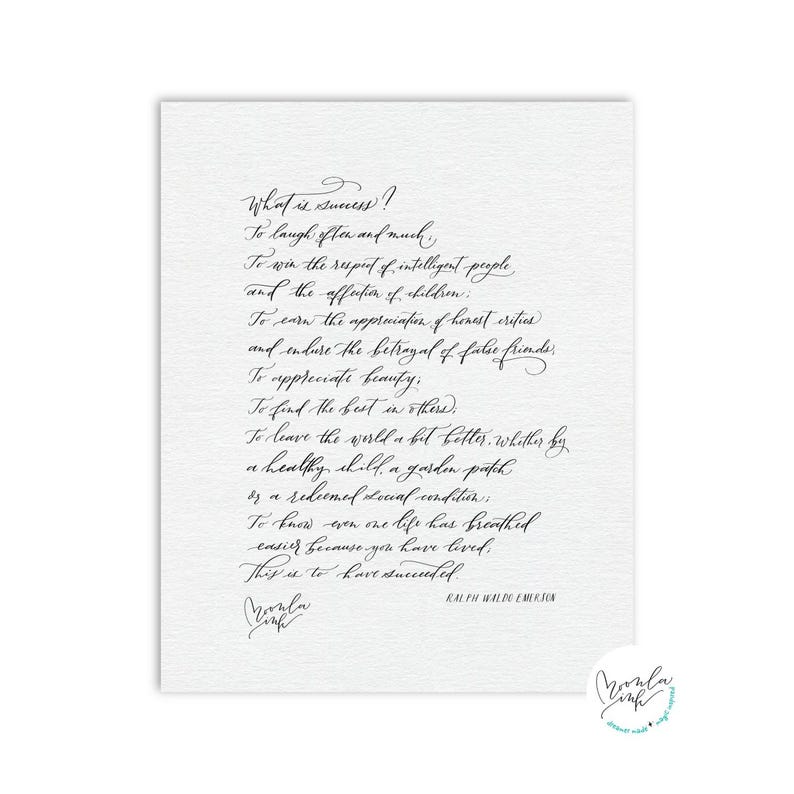 What is success?
To laugh often and much;
To win the respect of intelligent people
and the affection of children;
To earn the appreciation of honest critics
and endure the betrayal of false friends;
To appreciate beauty;
To find the best in others;
To leave the world a bit better, whether by
a healthy child, a garden patch
or a redeemed social condition;
To know even one life has breathed
easier because you have lived;
This is to have succeeded.
RALPH WALDO EMERSON
Moonla
ink
Moonla
ink
dreamer made ✦ magic inspired